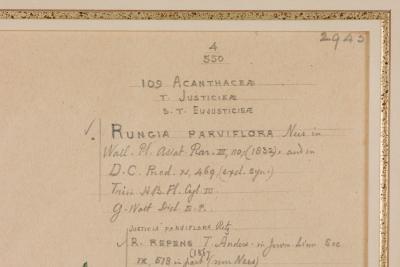 2945
4
550
109 ACANTHACEÆ
T. JUSTICIEÆ
S.T. EUJUSTICIEÆ
RUNGIA PARVIFLORA Nees in
Wall. Pl. Asiat. Rar. III, 110, (1832), and in
D.C. Prod. XI, 469 (excl. syn.)
Trim. H.B. Fl. Cyl. III
G. Watt Dict. E.P.
JUSTICIA PARVIFLORA Retz
R. REPENS T. Anders. in Journ. Linn Soc
IX, 518 in part (non Nees)
(1867)